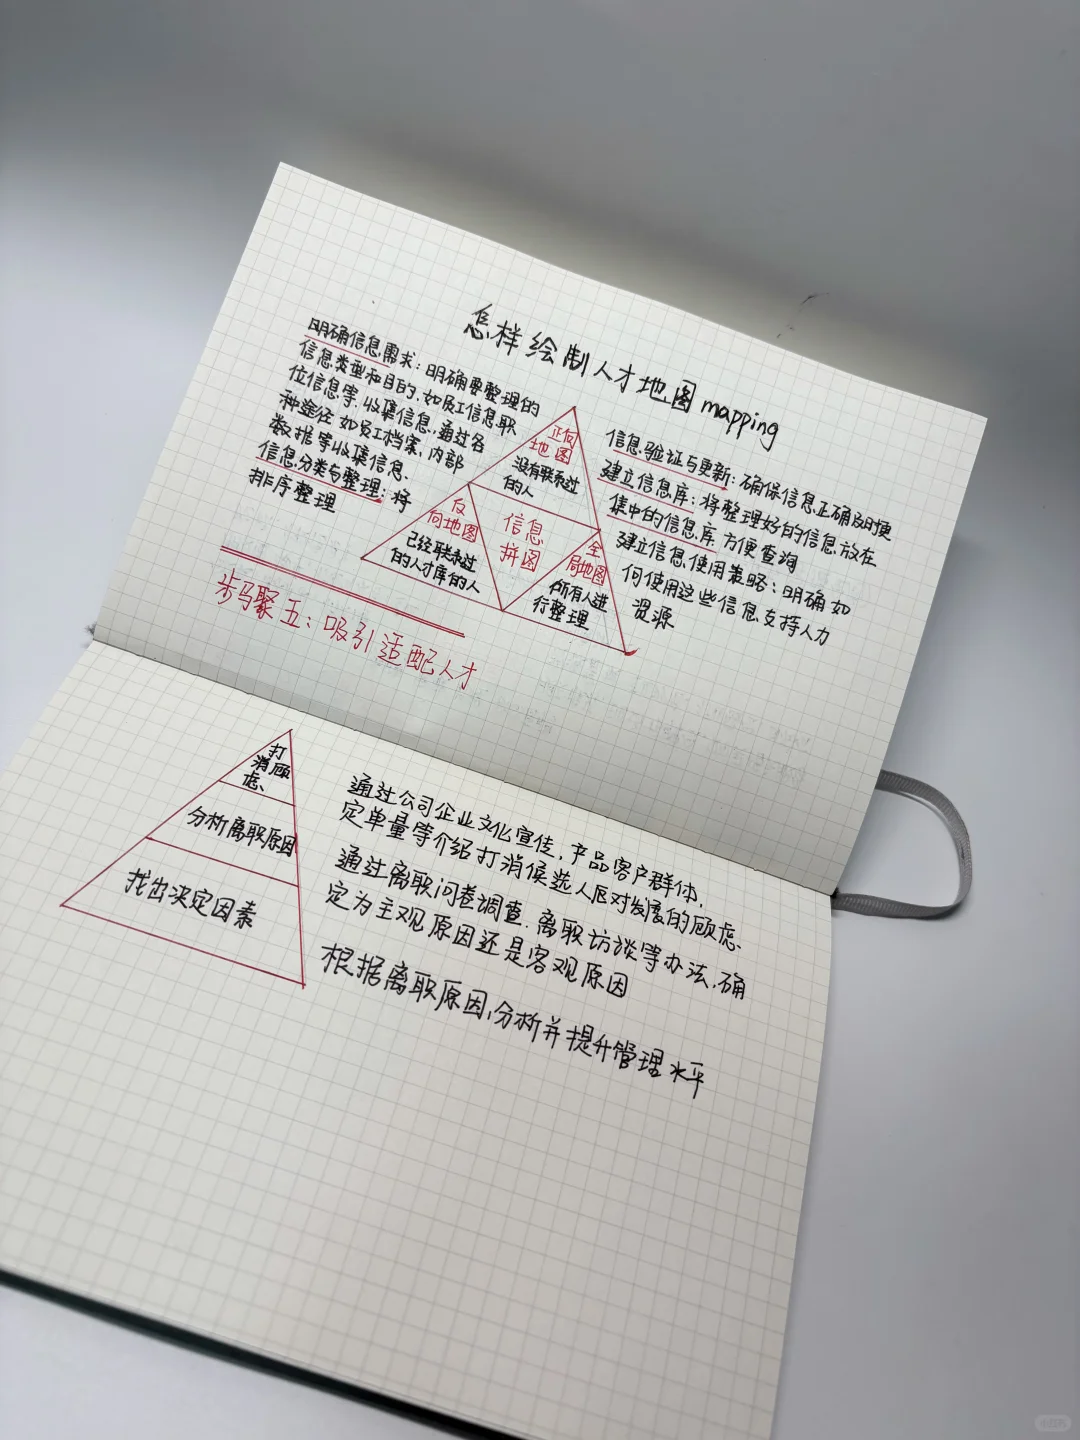 怎样绘制人才地图mapping
明确信息需求：明确要整理的
信息类型和目的，如员工信息职
位信息等，收集信息，通过各
种途径 如员工档案，内部
数据等收集信息.
信息分类与整理：将
排序整理
正向
地图
没有联系过
的人
反
向地图
已经联系过
的人才库的人
信息
拼图
全
局地图
所有人进
行整理
信息验证与更新：确保信息正确及时便
建立信息库：将整理好的信息放在
集中的信息库 方便查询
建立信息使用策略：明确如
何使用这些信息支持人力
资源
步骤五：吸引适配人才
打
消顾
虑
分析离职原因
找出决定因素
通过公司企业文化宣传，产品客户群体，
定单量等介绍打消候选人对发展的顾虑
通过离职问卷调查.离职访谈等办法，确
定为主观原因还是客观原因
根据离职原因，分析并提升管理水平
小红书